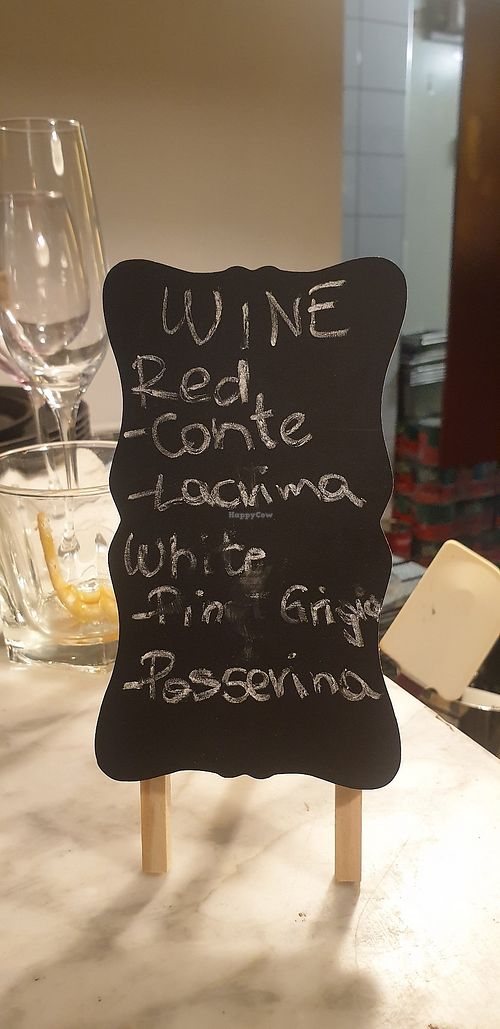 WINE
Red
-Conte
-Lacrima
HappyCow
White
-Pinot Grigio
-Passerina